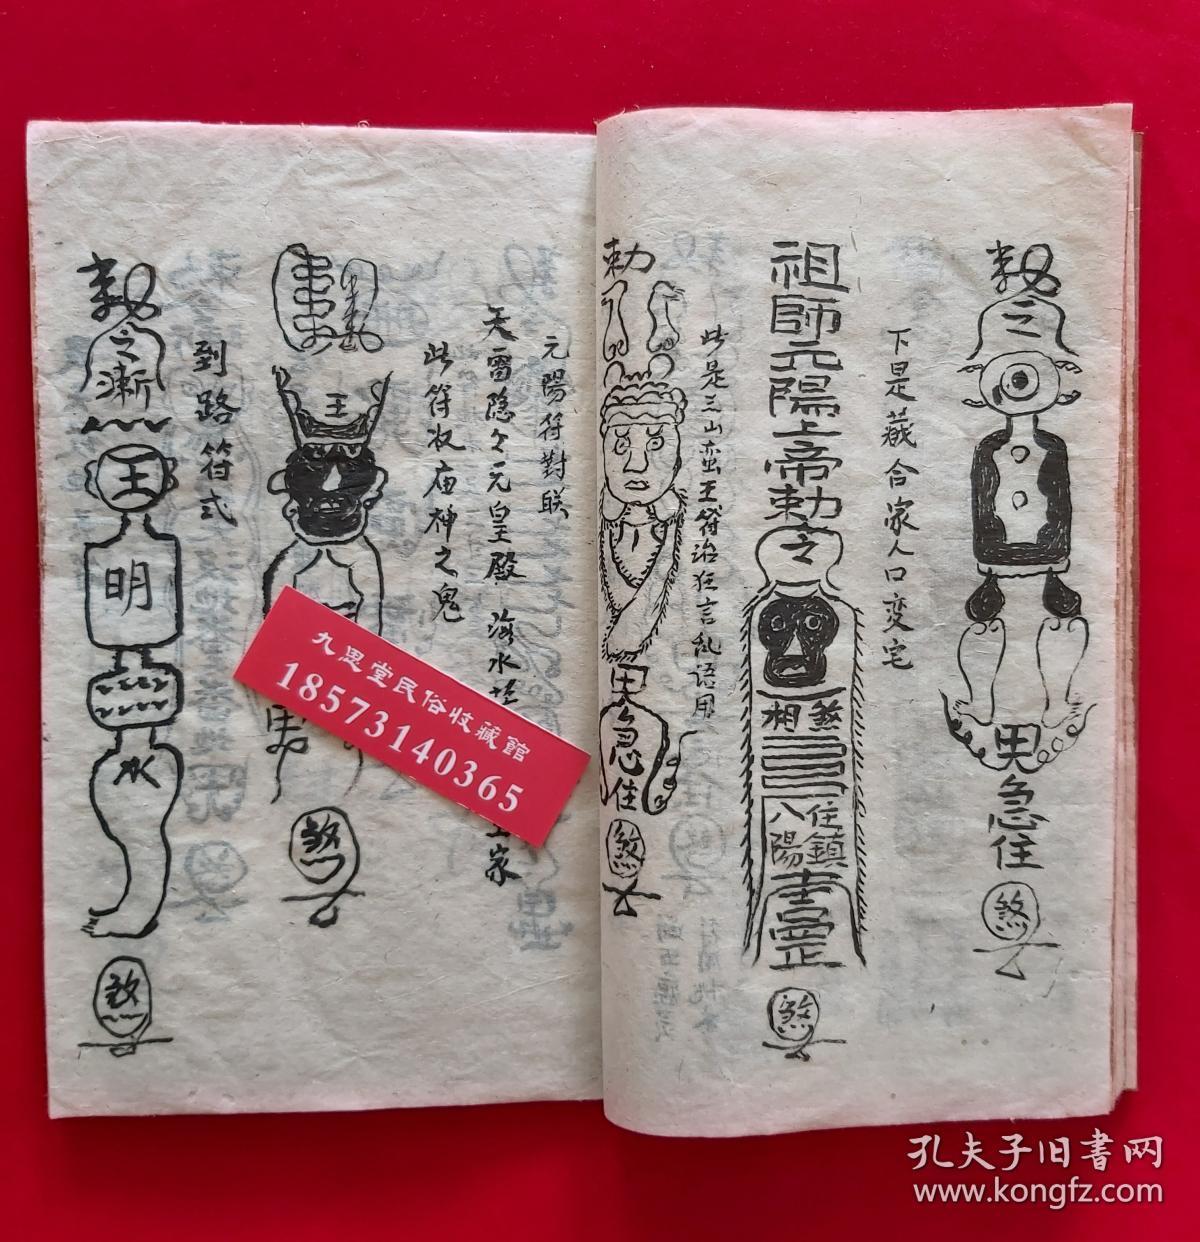 敕之
男
急住
煞
下是藏合家人口变宅
祖師元陽上帝敕之
相煞
八陽
住鎮
煞
此是三山蛮王符治狂言乱语用
敕
男
急住
煞
元陽符對联
天雷隐々元皇殿 海水
家
此符收庙神之鬼
王
男
煞
到路符式
敕之漸
王
明
水
煞
九思堂民俗收藏館
18573140365
孔夫子旧书网
www.kongfz.com